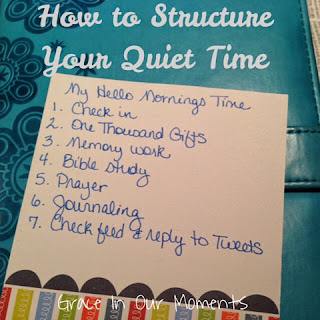 How to Structure
Your Quiet Time
My Hello Mornings Time
1. Check in
2. One Thousand Gifts
3. Memory work
4. Bible study
5. Prayer
6. Journaling
7. Check feed & reply to Tweets
Grace In Our Moments